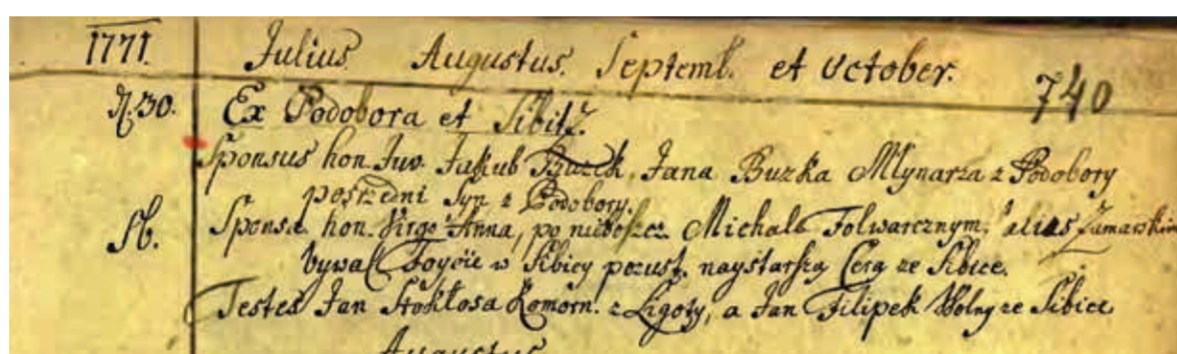 1771. Julius. Augustus. Septemb. et October.
740
N. 30. Ex Podobora et Sibitz.
Sponsus hon. Juv. Jakub Buzek, Jana Buzka Młynarza z Podobory
poszedni Syn z Podobory.
Sb. Sponsa hon. Virgo Anna, po niebosz. Michale Folwarcznym, alias Zamarskim
bywał. Foycie w Sibicy pozust. naystarszą Cerą ze Sibice.
Testes Jan Stokłosa Komorn. z Ligoty, a Jan Filipek Wolny ze Sibice
Augustus